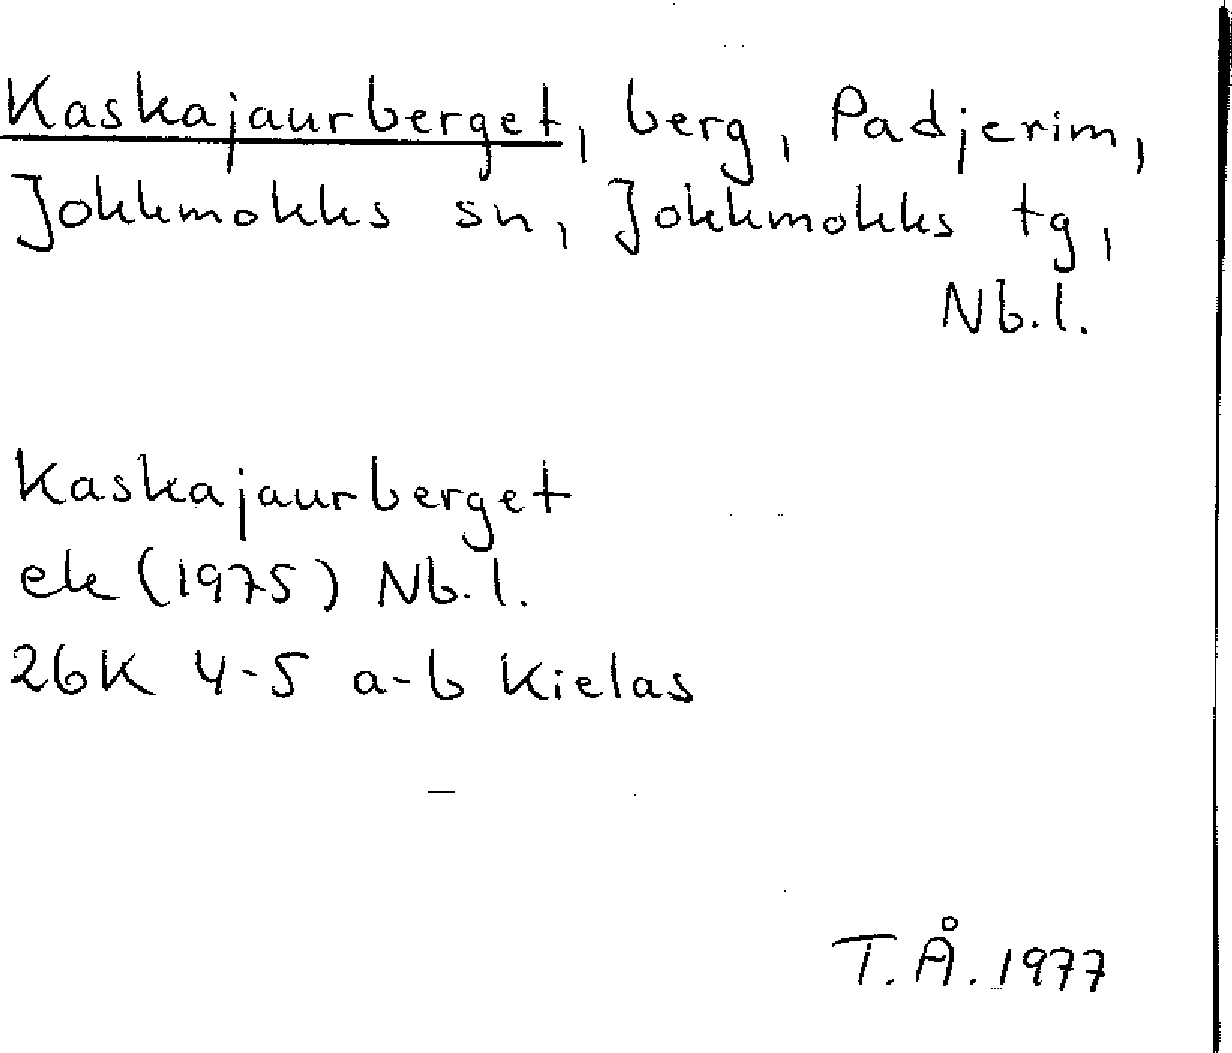 Kaskajaurberget, berg, Padjerim,
Jokkmokks sn, Jokkmokks tg,
Nb.l.
Kaskajaurberget
ek (1975) Nb.l.
26K 4-5 a-b Kielas
T.Å. 1977